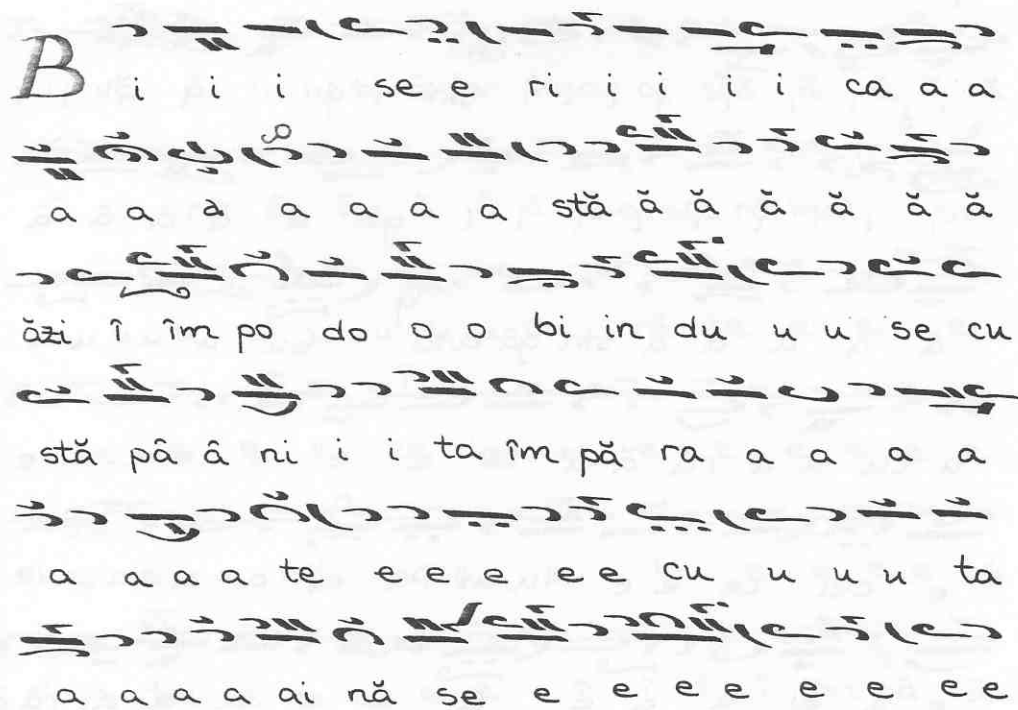 B i i i se e ri i i i i ca a a
a a a a a a a stă ă ă ă ă ă ă
ăzi î îm po do o o bi in du u u se cu
stă pâ â ni i i ta îm pă ra a a a a
a a a a te e e e e e cu u u u ta
a a a a ai nă se e e e e e e e e